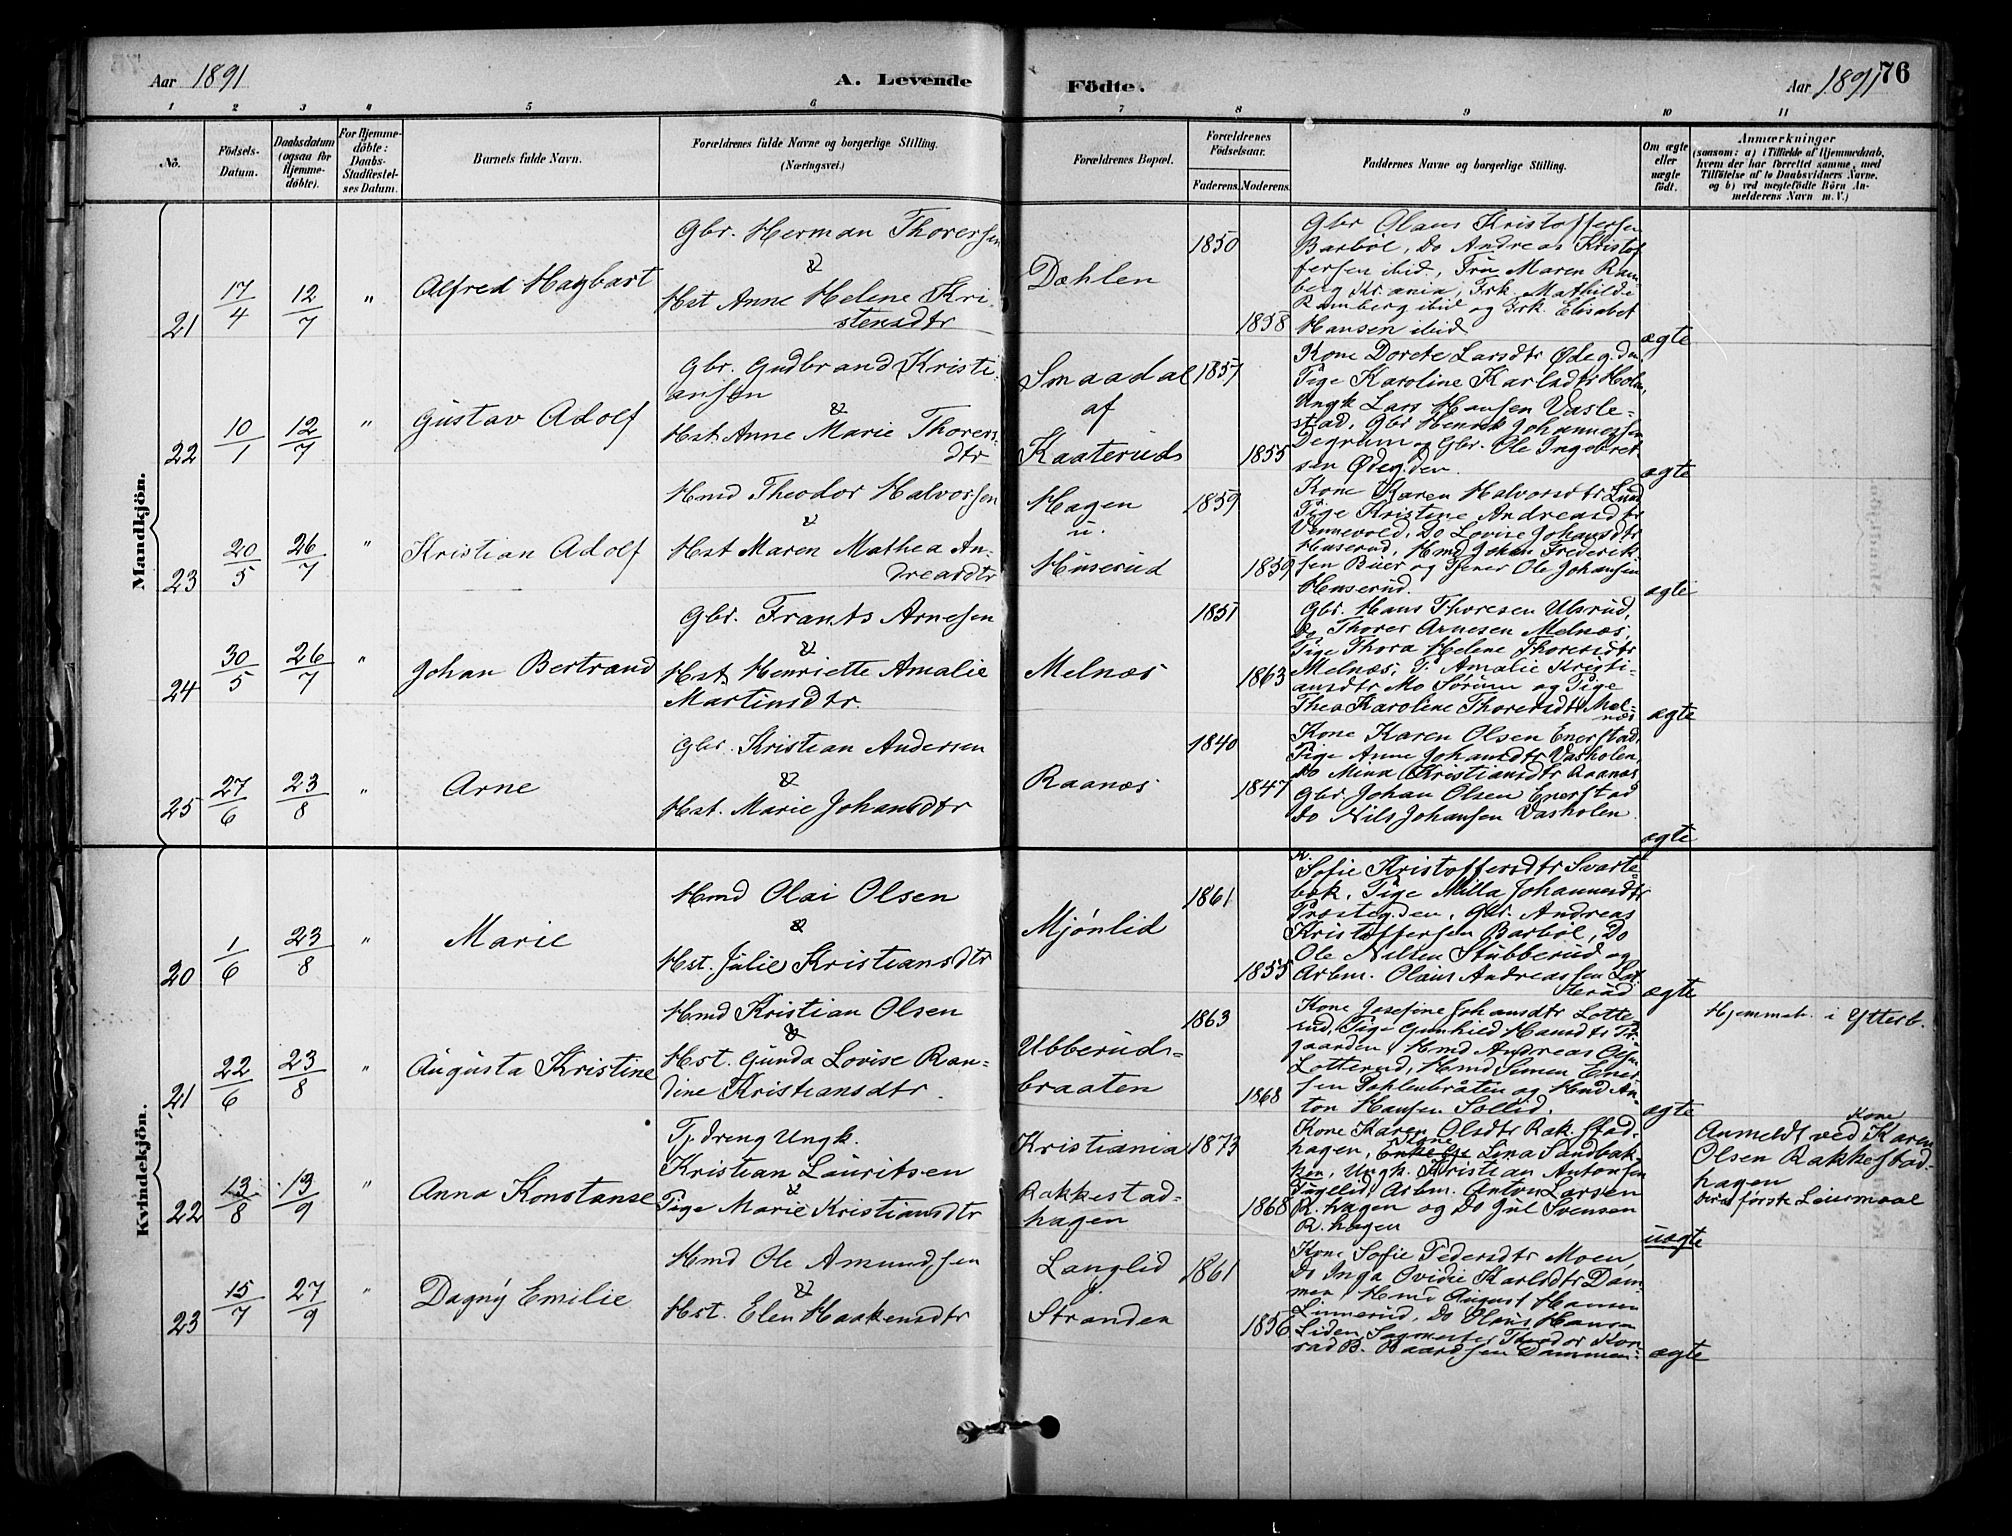 Aar 1891
A. Levende
Födte.
Aar 1891
76
1 2 3 4 5 6 7 8 9 10 11
No.
Födsels-
Datum.
Daabsdatum
(ogsaa for
Hjemme-
döbte).
For Hjemme-
döbte:
Daabs-
Stadfestel-
ses Datum.
Barnets fulde Navn.
Forældrenes fulde Navne og borgerlige Stilling.
(Næringsvei.)
Forældrenes Bopæl.
Forældrenes
Födselsaar.
Faderens. Moderens.
Faddernes Navne og borgerlige Stilling.
Om ægte
eller
uægte
födt.
Anmærkninger
(saasom: a) i Tilfælde af Hjemmedaab,
hvem der har forrettet samme, med
Tilföielse af to Daabsvidners Navne,
og b) ved uægtefödte Börn An-
melderens Navn m. V.)
Mandkjön.
21
17/4
12/7
"
Alfred Hagbart
Gbr. Herman Thoresen
&
Hst Anne Helene Kri-
stensdtr
Dæhlen
1850
1858
Gbr Olaus Kristoffersen
Barbøl, Do Andreas Kristof
fersen ibid, Fru Maren Ram
berg Kr.ania, Frk. Mathilde
Ramberg ibid og Frk. Elisabet
Hansen ibid
ægte
22
10/1
12/7
"
Gustav Adolf
Gbr. Gudbrand Kristi-
ansen
&
Hst Anne Marie Thorers-
dtr
Smaadal
af
Kaateruds
1857
1855
Kone Dorete Larsdtr Ødeg.den,
Pige Karoline Karlsdtr Holm,
Ungk Lars Hansen Vasle-
stad, Gbr Henrik Johannessen
Degrum og Gbr. Ole Ingebret
sen Ødeg.den.
ægte
23
20/5
26/7
"
Kristian Adolf
Hmd Theodor Halvorsen
&
Hst Maren Mathea An-
dreasdtr
Hagen
u.
Huserud
1859
1859
Kone Karen Halvorsdtr Lund
Pige Kristine Andreasdtr
Vennevold, Do Lovise Johansdtr
Huserud, Hmd Johan Frederik-
sen Buer og Tjener Ole Johansen
Huserud.
ægte
24
30/5
26/7
"
Johan Bertrand
Gbr. Frants Arnesen
&
Hst Henriette Amalie
Martinsdtr
Melnæs
1851
1863
Gbr. Hans Thoresen Ulsrud,
Do Thorer Arnesen Melnæs,
Pige Thora Helene Thoresdtr
Melnæs, P. Amalie Kristi-
ansdtr Mo Sørum og Pige
Thea Karoline Thoresdtr Mel-
næs
ægte
25
27/6
23/8
"
Arne
Gbr. Kristian Andersen
&
Hst. Marie Johansdtr
Raanæs
1840
1847
Kone Karen Olsen Enerstad,
Pige Anne Johansdtr Vasholen,
Do Mina Kristiansdtr Raanæs
Gbr Johan Olsen Enerstad
Do Nils Johansen Vasholen
ægte
Kvindekjön.
20
1/6
23/8
"
Marie
Hmd Olai Olsen
&
Hst. Julie Kristiansdtr
Mjønlid
1861
1855
K.
Sofie Kristoffersdtr Svarte-
bæk, Pige Milla Johannesdtr
Præsteg.den, Gbr. Andreas
Kristoffersen Barbøl, Do
Ole Nilsen Stubberud og
Arbm. Olaus Andreassen
ægte
21
22/6
23/8
"
Augusta Kristine
Hmd Kristian Olsen
&
Hst. Gunda Lovise Ran-
dine Kristiansdtr.
Ubberuds-
braaten
1863
1868
Kone Josefine Johansdtr Lotte-
rud, Pige Gunhild Hansdtr
gaarden, Hmd Andreas Olsen
Lotterud, Hmd Simen Ener-
sen Dahlenbråten og Hmd An-
ton Hansen Sollid.
ægte
Hjemmeh. i Ytterb.
22
13/8
13/9
"
Anna Konstanse
Tj.dreng Ungk.
Kristian Lauritsen
&
Pige Marie Kristiansdtr
Kristiania
Rakkestad-
hagen
1873
1868
Kone Karen Olsdtr Rak.stad-
hagen, Kone Lina Sandbak-
ken, Ungk. Kristian Antonsen
Fuglelid, Arbm. Anton Larsen
R.hagen og Do Jul Svensen
R.hagen
uægte
Kone
Anmeldt ved Karen
Olsen Rakkestad-
hagen
Deres første Leiermaal
23
15/7
27/9
"
Dagny Emilie
Hmd Ole Amundsen
&
Hst. Elen Haakensdtr
Langlid
Stranden
1861
1856
Kone Sofie Pedersdtr Moen,
Do Inga Ovidie Karlsdtr Dam-
men, Hmd August Hansen
Linnerud, Do Olaus Hansen
Liden, Sagmester Theodor Kon-
rad B. Baardsen Dammen.
ægte